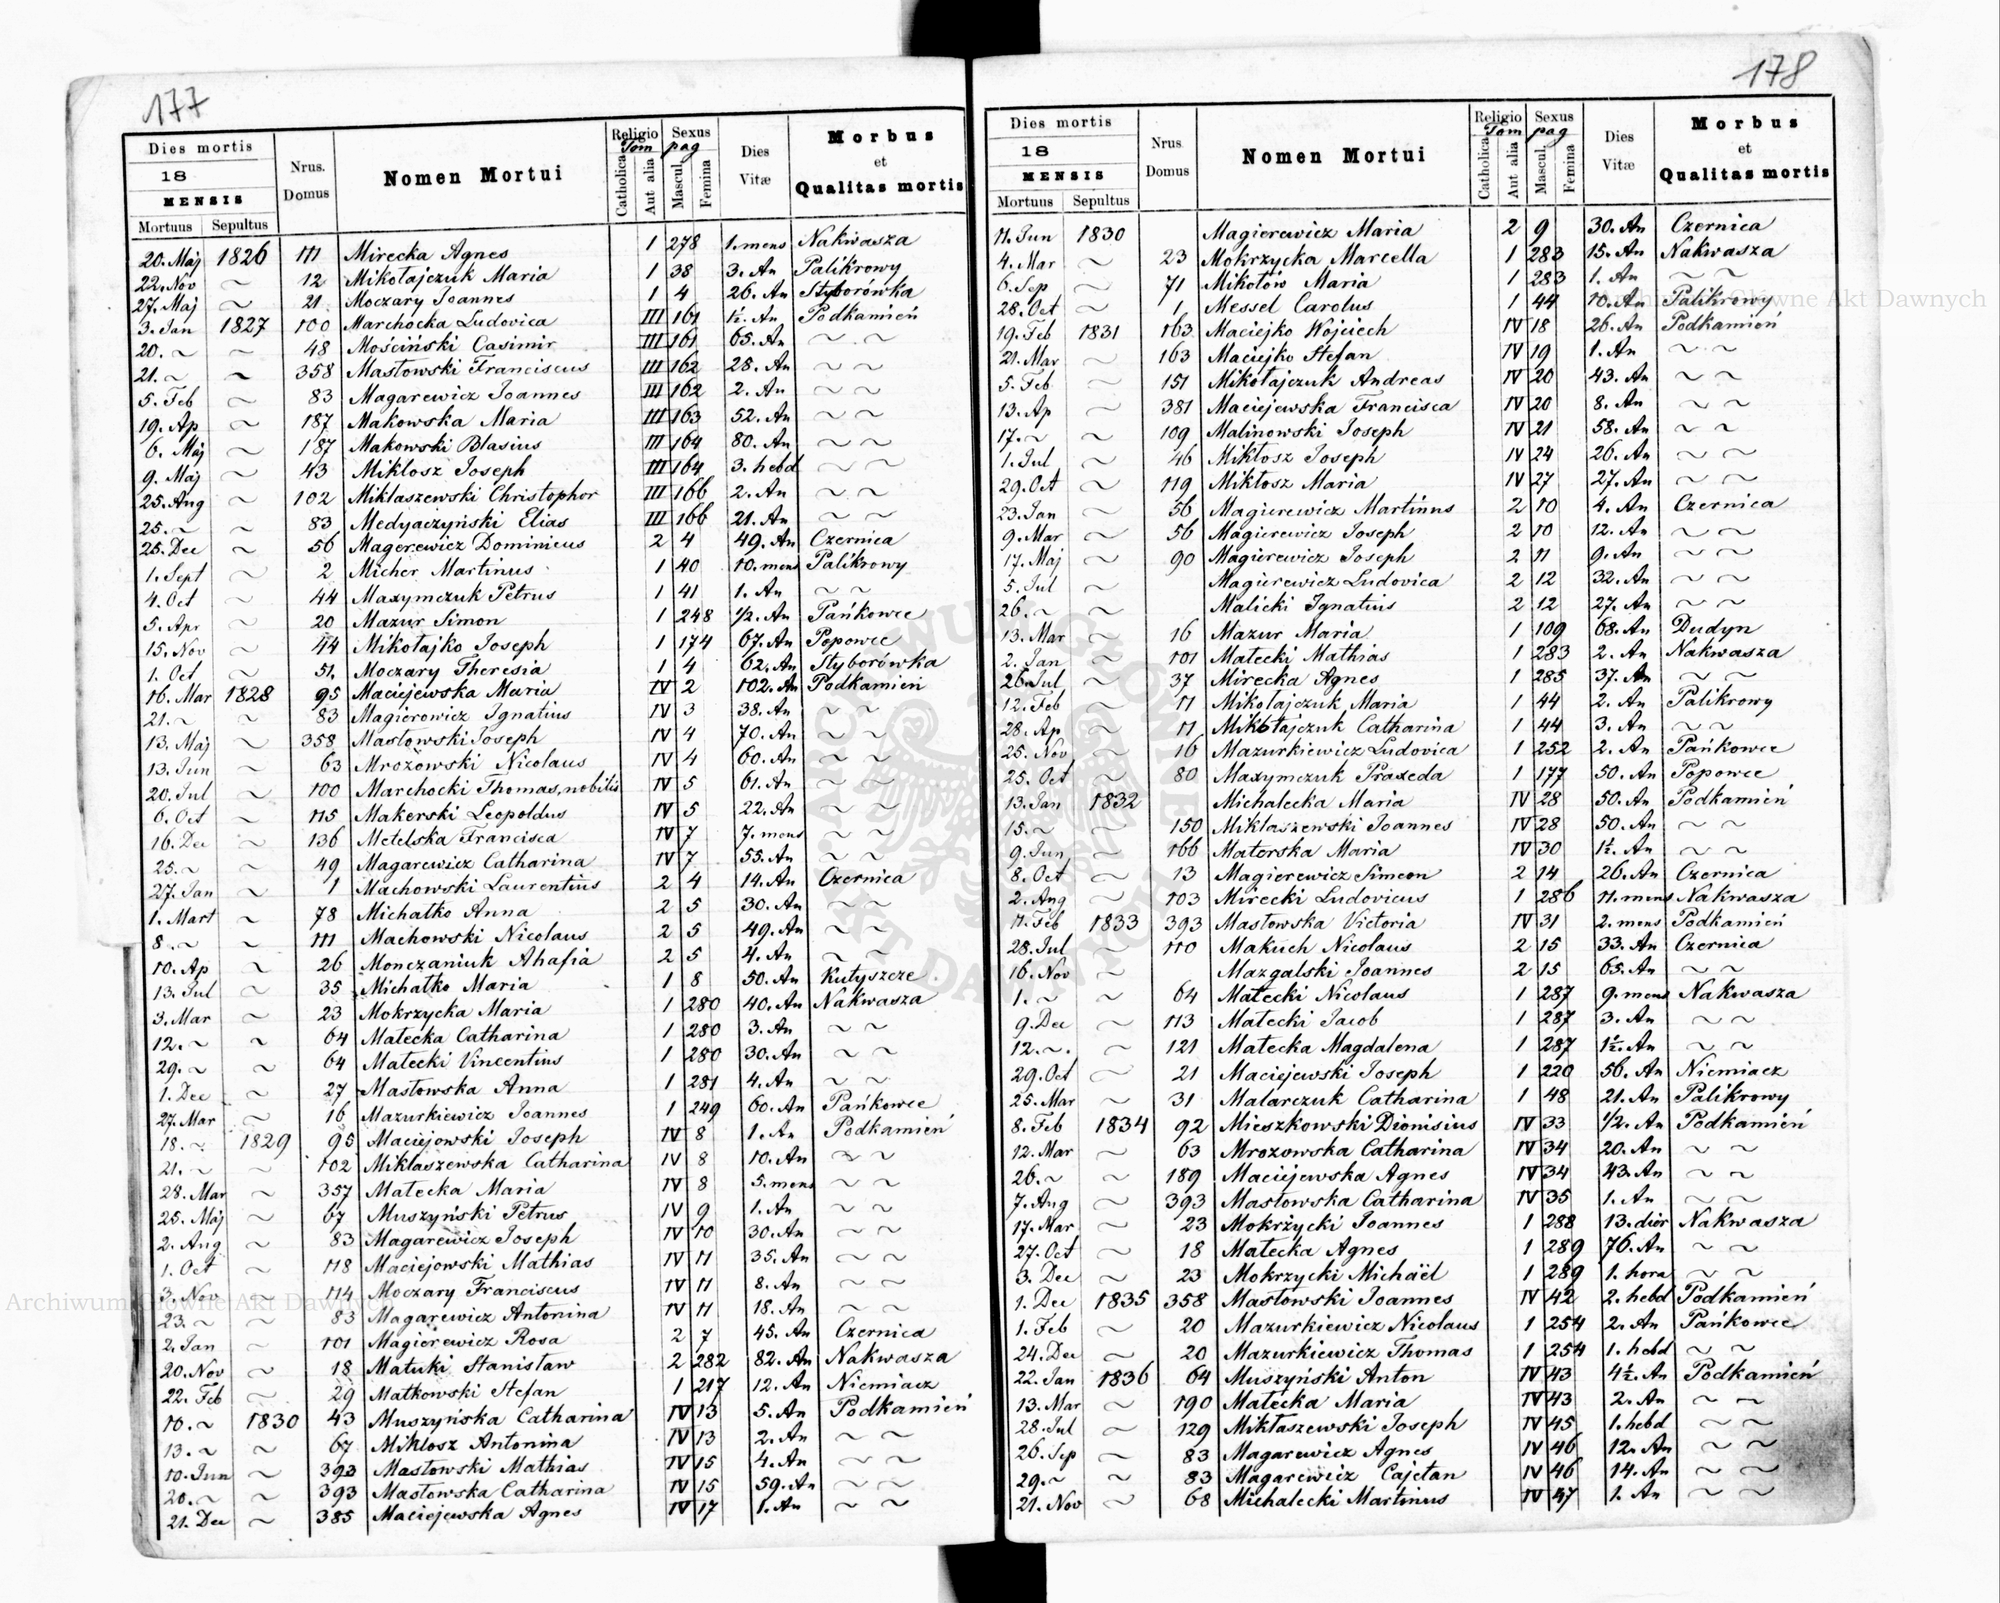 177
Dies mortis
18
MENSIS
Mortuus Sepultus
Nrus. Domus
Nomen Mortui
Religio Tom
Catholica Aut alia
Sexus pag
Mascul. Femina
Dies Vitæ
Morbus et Qualitas mortis
20. Maj 1826 111 Mirecka Agnes 1 278 1. mens Nakwasza
22. Nov ~ 12 Mikołajczuk Maria 1 38 3. An Palikrowy
27. Maj ~ 21 Moczary Joannes 1 4 26. An Styborówka
3. Jan 1827 100 Marchocka Ludovica III 161 1½. An Podkamień
20. ~ ~ 48 Mościński Casimir III 161 65. An ~ ~
21. ~ ~ 358 Masłowski Franciscus III 162 28. An ~ ~
5. Feb ~ 83 Magarewicz Joannes III 162 2. An ~ ~
19. Ap ~ 187 Makowska Maria III 163 52. An ~ ~
6. Maj ~ 187 Makowski Blasius III 164 80. An ~ ~
9. Maj ~ 43 Miklosz Joseph III 164 3. hebd ~ ~
25. Aug ~ 102 Miklaszewski Christophor III 166 2. An ~ ~
25. ~ ~ 83 Medyaczyński Elias III 166 21. An ~ ~
25. Dec ~ 56 Magerewicz Dominicus 2 4 49. An Czernica
1. Sept ~ 2 Micher Martinus 1 40 10. mens Palikrowy
4. Oct ~ 44 Maxymczuk Petrus 1 41 1. An ~ ~
5. Apr ~ 20 Mazur Simon 1 248 1/2. An Pańkowce
15. Nov ~ 44 Mikołajko Joseph 1 174 67. An Popowce
1. Oct ~ 51. Moczary Theresia 1 4 62. An Styborówka
16. Mar 1828 95 Maciejewska Maria IV 2 102. An Podkamień
21. ~ ~ 83 Magierowicz Ignatius IV 3 38. An ~ ~
13. Maj ~ 358 Masłowski Joseph IV 4 70. An ~ ~
13. Jun ~ 63 Mrozowski Nicolaus IV 4 60. An ~ ~
20. Jul ~ 100 Marchocki Thomas, nobilis IV 5 61. An ~ ~
6. Oct ~ 115 Makerski Leopoldus IV 5 22. An ~ ~
16. Dec ~ 136 Metelska Francisca IV 7 7. mens ~ ~
25. ~ ~ 49 Magarewicz Catharina IV 7 55. An ~ ~
27. Jan ~ 1 Machowski Laurentius 2 4 14. An Czernica
1. Mart ~ 78 Michałko Anna 2 5 30. An ~ ~
8. ~ ~ 111 Machowski Nicolaus 2 5 49. An ~ ~
10. Ap ~ 26 Monczaniuk Ahafia 2 5 4. An ~ ~
13. Jul ~ 35 Michałko Maria 1 8 50. An Kutyszcze
3. Mar ~ 23 Mokrzycka Maria 1 280 40. An Nakwasza
12. ~ ~ 64 Małecka Catharina 1 280 3. An ~ ~
29. ~ ~ 64 Małecki Vincentius 1 280 30. An ~ ~
1. Dec ~ 27 Masłowska Anna 1 281 4. An ~ ~
27. Mar ~ 16 Mazurkiewicz Joannes 1 249 60. An Pańkowce
18. ~ 1829 95 Maciejowski Joseph IV 8 1. An Podkamień
21. ~ ~ 102 Miklaszewska Catharina IV 8 10. An ~ ~
28. Mar ~ 357 Małecka Maria IV 8 5. mens ~ ~
25. Maj ~ 67 Muszyński Petrus IV 9 1. An ~ ~
2. Aug ~ 83 Magarewicz Joseph IV 10 30. An ~ ~
1. Oct ~ 118 Maciejowski Mathias IV 11 35. An ~ ~
3. Nov ~ 114 Moczary Franciscus IV 11 8. An ~ ~
23. ~ ~ 83 Magarewicz Antonina IV 11 18. An ~ ~
2. Jan ~ 101 Magierewicz Rosa 2 7 45. An Czernica
20. Nov ~ 18 Matuki Stanisław 2 282 82. An Nakwasza
22. Feb ~ 29 Matkowski Stefan 1 217 12. An Niemiacz
10. ~ 1830 43 Muszyńska Catharina IV 13 5. An Podkamień
13. ~ ~ 67 Miklosz Antonina IV 13 2. An ~ ~
10. Jun ~ 393 Masłowski Mathias IV 15 4. An ~ ~
20. ~ ~ 393 Masłowska Catharina IV 15 59. An ~ ~
21. Dec ~ 385 Maciejewska Agnes IV 17 1. An ~ ~
178
Dies mortis
18
MENSIS
Mortuus Sepultus
Nrus. Domus
Nomen Mortui
Religio Tom
Catholica Aut alia
Sexus pag
Mascul. Femina
Dies Vitæ
Morbus et Qualitas mortis
11. Jun 1830 Magierewicz Maria 2 9 30. An Czernica
4. Mar ~ 23 Mokrzycka Marcella 1 283 15. An Nakwasza
6. Sep ~ 71 Mikołów Maria 1 283 1. An ~ ~
28. Oct ~ 1 Messel Carolus 1 44 10. An Palikrowy
19. Feb 1831 163 Maciejko Wojciech IV 18 26. An Podkamień
21. Mar ~ 163 Maciejko Stefan IV 19 1. An ~ ~
5. Feb ~ 151 Mikołajczuk Andreas IV 20 43. An ~ ~
13. Ap ~ 381 Maciejewska Francisca IV 20 8. An ~ ~
17. ~ ~ 109 Malinowski Joseph IV 21 58. An ~ ~
1. Jul ~ 46 Mikłosz Joseph IV 24 26. An ~ ~
29. Oct ~ 119 Mikłosz Maria IV 27 27. An ~ ~
23. Jan ~ 56 Magierewicz Martinus 2 10 4. An Czernica
9. Mar ~ 56 Magierewicz Joseph 2 10 12. An ~ ~
17. Maj ~ 90 Magierewicz Joseph 2 11 9. An ~ ~
5. Jul ~ Magierewicz Ludovica 2 12 32. An ~ ~
26. ~ ~ Malicki Ignatius 2 12 27. An ~ ~
13. Mar ~ 16 Mazur Maria 1 109 68. An Dudyn
2. Jan ~ 101 Małecki Mathias 1 283 2. An Nakwasza
26. Jul ~ 37 Mirecka Agnes 1 285 37. An ~ ~
12. Feb ~ 11 Mikołajczuk Maria 1 44 2. An Palikrowy
28. Ap ~ 11 Mikołajczuk Catharina 1 44 3. An ~ ~
25. Nov ~ 16 Mazurkiewicz Ludovica 1 252 2. An Pańkowce
25. Oct ~ 80 Maxymczuk Praxeda 1 177 50. An Popowce
13. Jan 1832 Michalecka Maria IV 28 50. An Podkamień
15. ~ ~ 150 Miklaszewski Joannes IV 28 50. An ~ ~
9. Jun ~ 166 Materska Maria IV 30 1½. An ~ ~
8. Oct ~ 13 Magierewicz Simeon 2 14 26. An Czernica
2. Aug ~ 103 Mirecki Ludovicus 1 286 11. mens Nakwasza
11. Feb 1833 393 Masłowska Victoria IV 31 2. mens Podkamień
28. Jul ~ 110 Makuch Nicolaus 2 15 33. An Czernica
16. Nov ~ Mazgalski Joannes 2 15 65. An ~ ~
1. ~ ~ 64 Małecki Nicolaus 1 287 9. mens Nakwasza
9. Dec ~ 113 Małecki Jacob 1 287 3. An ~ ~
12. ~. ~ 121 Małecka Magdalena 1 287 1½. An ~ ~
29. Oct ~ 21 Maciejewski Joseph 1 220 56. An Niemiacz
25. Mar ~ 31 Malarczuk Catharina 1 48 21. An Palikrowy
8. Feb 1834 92 Mieszkowski Dionisius IV 33 1/2. An Podkamień
12. Mar ~ 63 Mrozowska Catharina IV 34 20. An ~ ~
26. ~ ~ 189 Maciejewska Agnes IV 34 43. An ~ ~
7. Aug ~ 393 Masłowska Catharina IV 35 1. An ~ ~
17. Mar ~ 23 Mokrzycki Joannes 1 288 13. dier Nakwasza
27. Oct ~ 18 Małecka Agnes 1 289 76. An ~ ~
3. Dec ~ 23 Mokrzycki Michaël 1 289 1. hora ~ ~
1. Dec 1835 358 Masłowski Joannes IV 42 2. hebd Podkamień
1. Feb ~ 20 Mazurkiewicz Nicolaus 1 254 2. An Pańkowce
24. Dec ~ 20 Mazurkiewicz Thomas 1 254 1. hebd ~ ~
22. Jan 1836 64 Muszyński Anton IV 43 4½. An Podkamień
13. Mar ~ 190 Małecka Maria IV 43 2. An ~ ~
28. Jul ~ 129 Mikłaszewski Joseph IV 45 1. hebd ~ ~
26. Sep ~ 83 Magarewicz Agnes IV 46 12. An ~ ~
29. ~ ~ 83 Magarewicz Cajetan IV 46 14. An ~ ~
21. Nov ~ 68 Michalecki Martinus IV 47 1. An ~ ~
Archiwum Główne Akt Dawnych
Archiwum Główne Akt Dawnych
ARCHIWUM GŁÓWNE AKT DAWNYCH